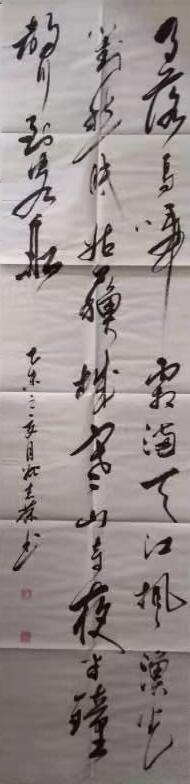 月落烏啼霜滿天江楓漁火
對愁眠姑蘇城外寒山寺夜半鐘
聲到客船
乙未 月 書